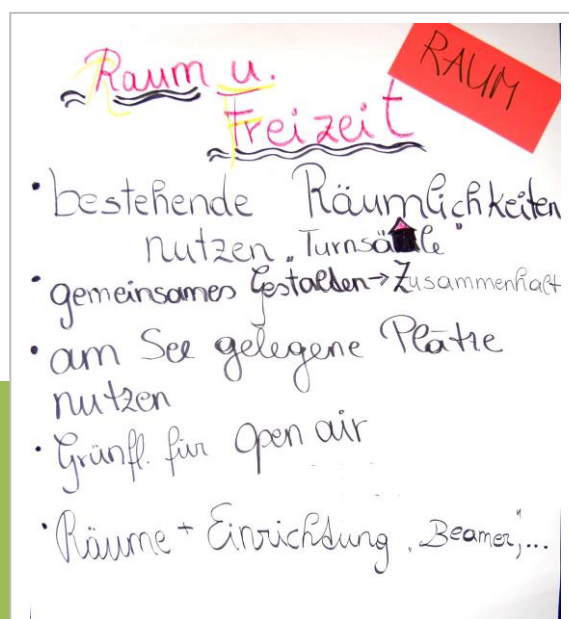 Raum u.
Freizeit
RAUM
• bestehende Räumlichkeiten
nutzen „Turnsäle"
• gemeinsames Gestalten → Zusammenhalt
• am See gelegene Plätze
nutzen
• Grünfl. für Open air
• Räume + Einrichtung „Beamer",...